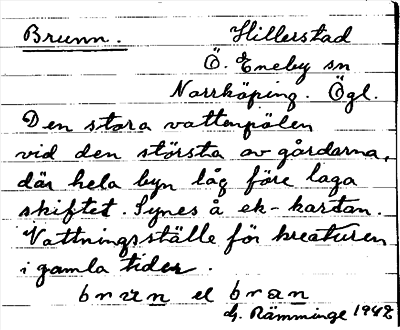 Brunn. Hillerstad
Ö. Eneby sn
Norrköping. Ögl.
Den stora vattenpölen
vid den största av gårdarna,
där hela byn låg före laga
skiftet. Synes å ek-kartan.
Vattningsställe för kreaturen
i gamla tider.
brun el bran
G. Rämminge 1942